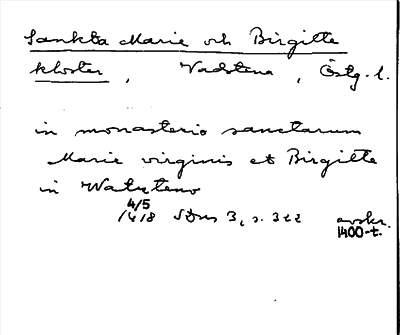 Sankta Marie och Birgitte
kloster, Vadstena, Östg. l.
in monasterio sanctarum
Marie virginis et Birgitte
in Watzteno
4/5
1418 SDns 3, s. 322 avskr.
1400-t.